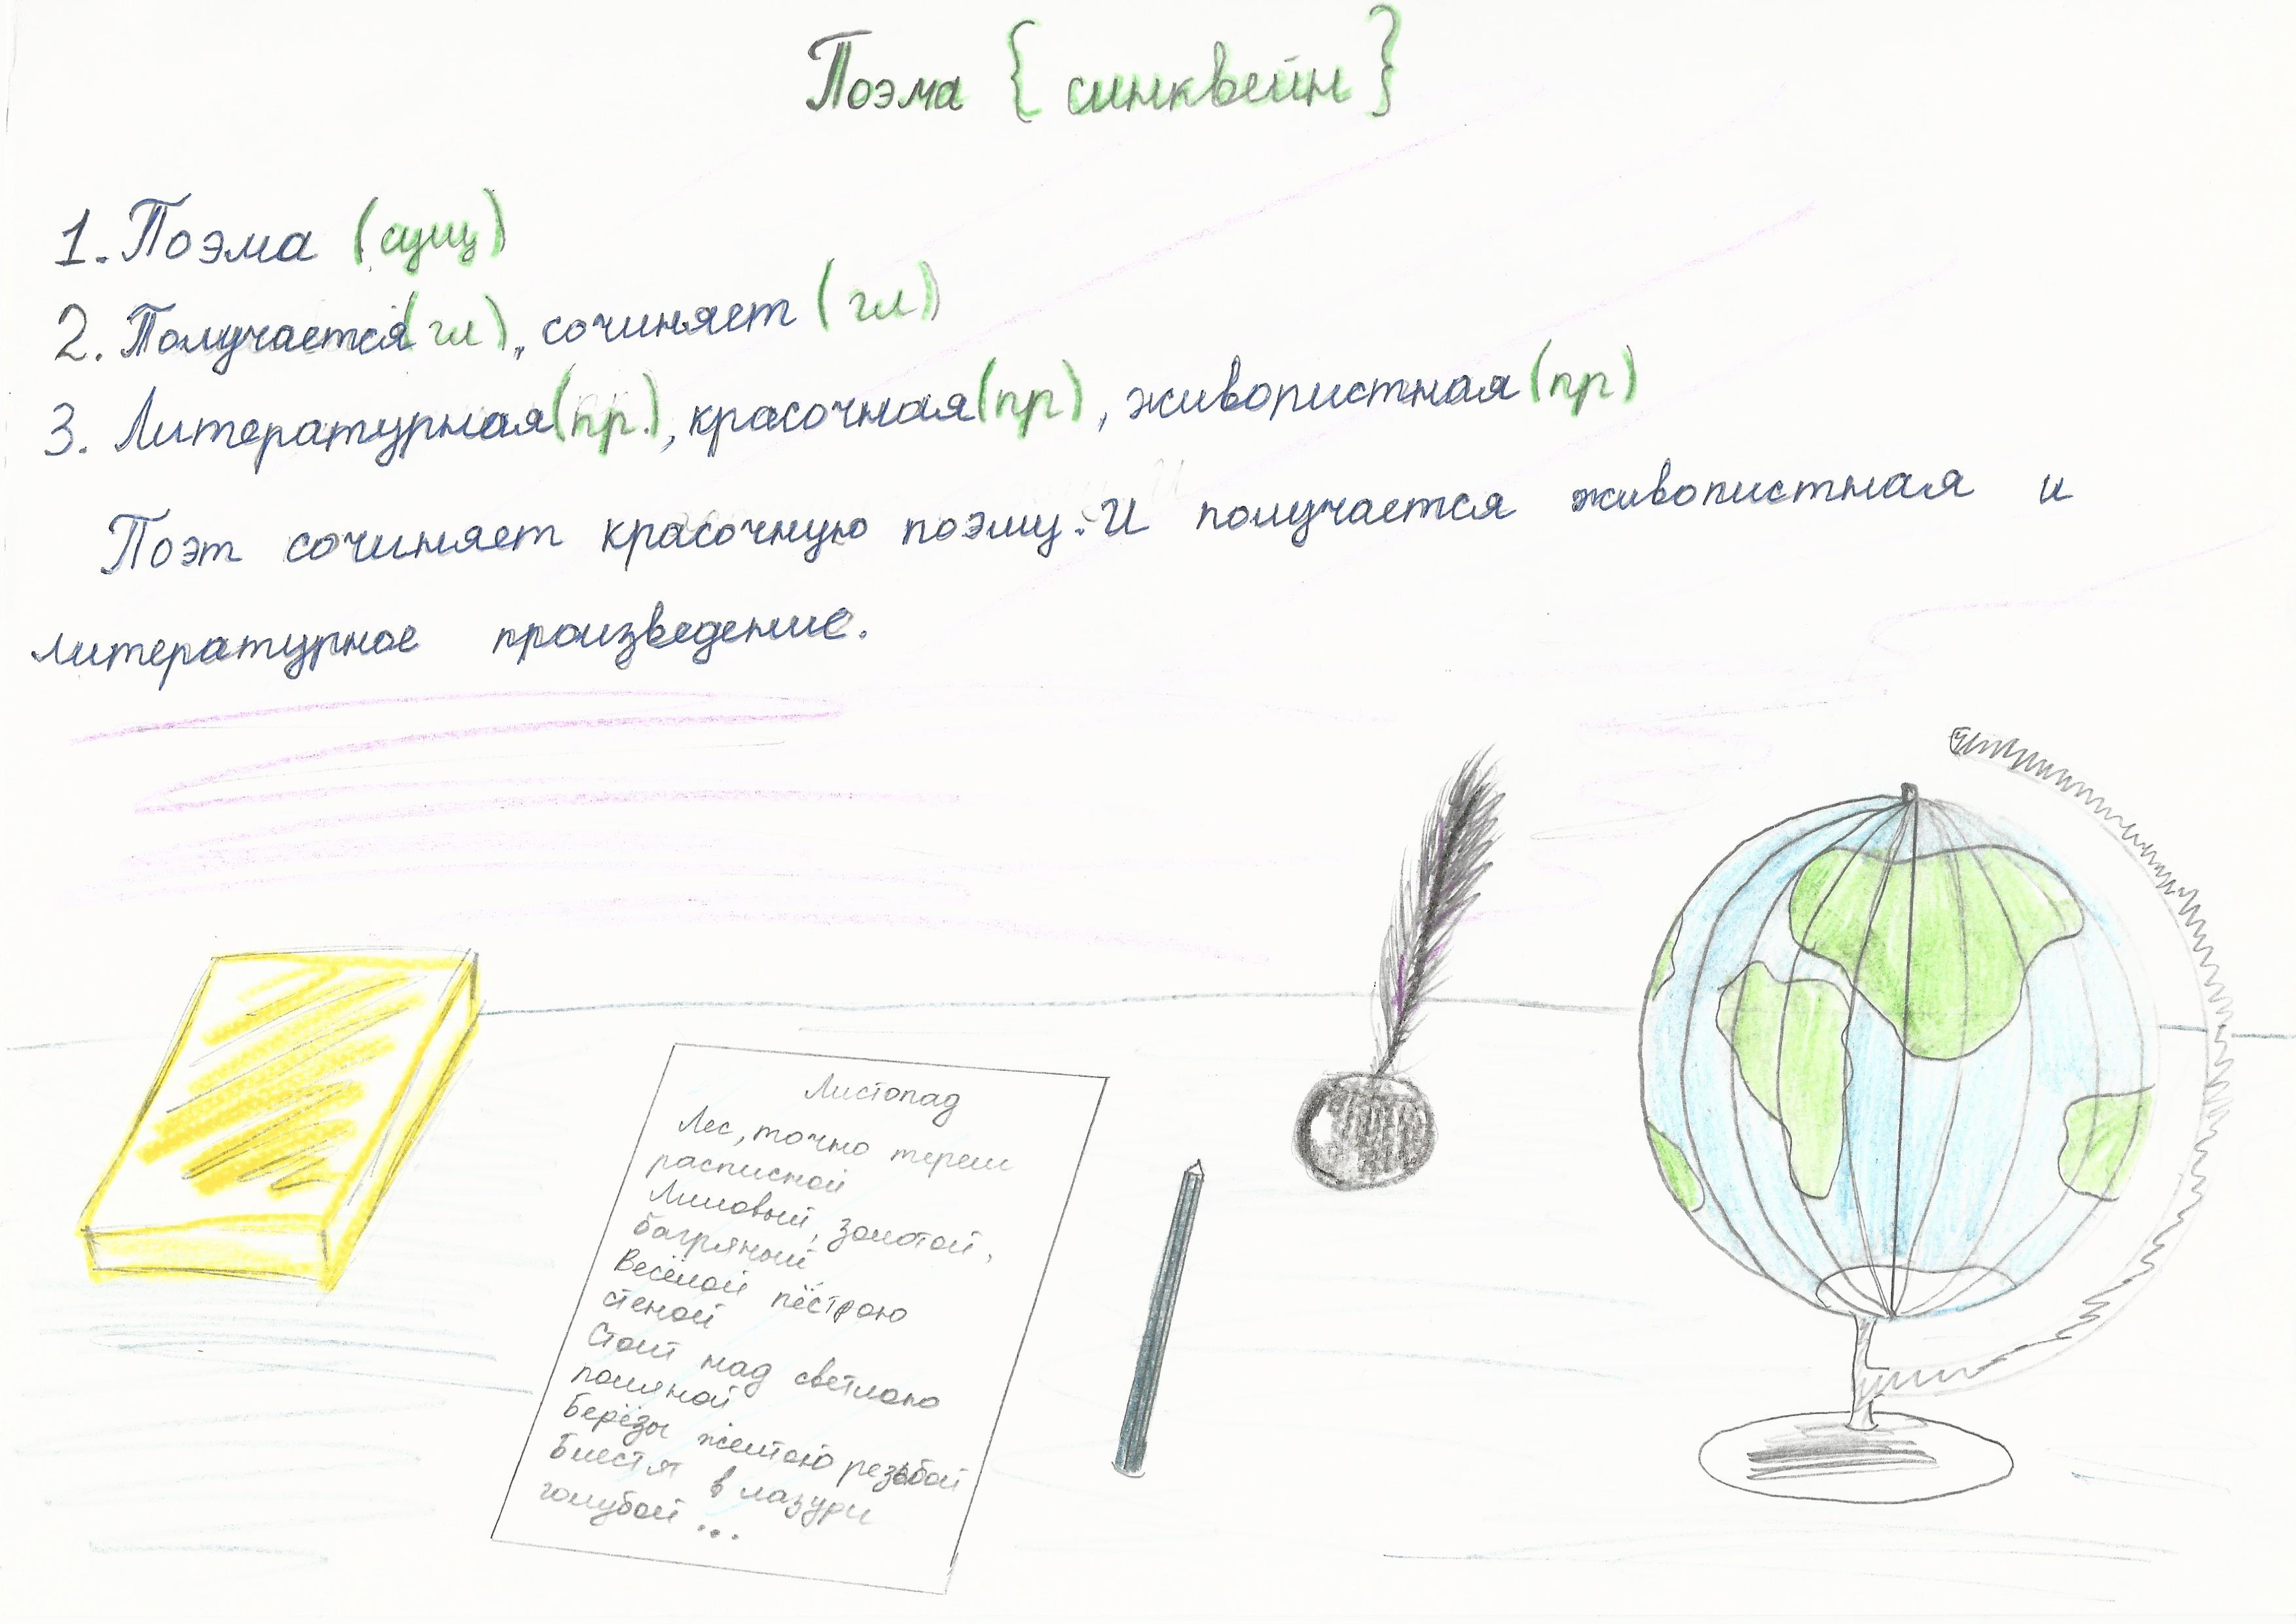 Поэма { синквейн }
1. Поэма (сущ)
2. Получается(гл), сочиняет (гл)
3. Литературная(пр.), красочная(пр), живопистная(пр)
Поэт сочиняет красочную поэму. И получается живопистная и
литературное произведение.
Листопад
Лес, точно терем
расписной
Лиловый, золотой,
багряный
Весёлой пёстрою
стеной
Стоит над светлою
поляной
Берёзы жёлтою резьбой
Блестят в лазури
голубой ...